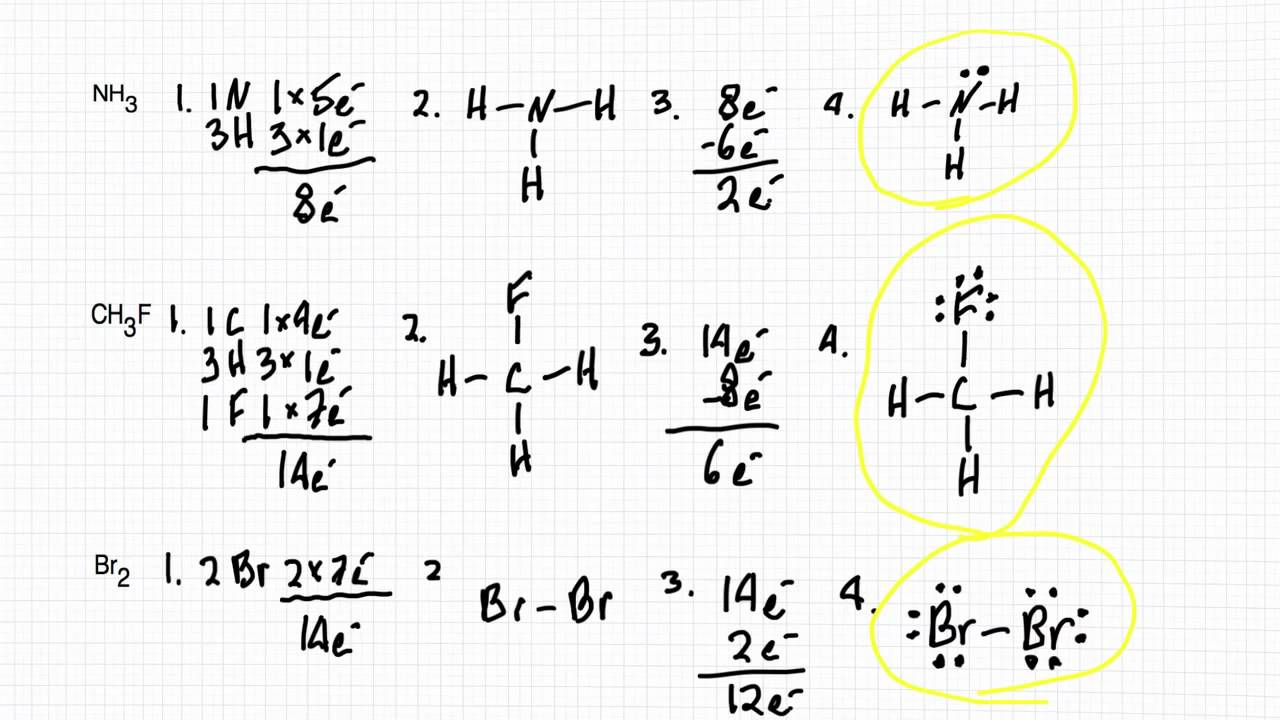 NH₃ 1. 1N 1×5e⁻ 2. H–N–H 3. 8e⁻ 4. H–N̈–H
3H 3×1e⁻ | -6e⁻ |
8e⁻ H 2e⁻ H
F :F̈:
CH₃F 1. 1C 1×4e⁻ 2. | 3. 14e⁻ 4. |
3H 3×1e⁻ H–C–H -8e⁻ H–C–H
1F 1×7e⁻ | |
14e⁻ H 6e⁻ H
Br₂ 1. 2Br 2×7e⁻ 2 Br–Br 3. 14e⁻ 4. :Br–Br:
14e⁻ 2e⁻
12e⁻